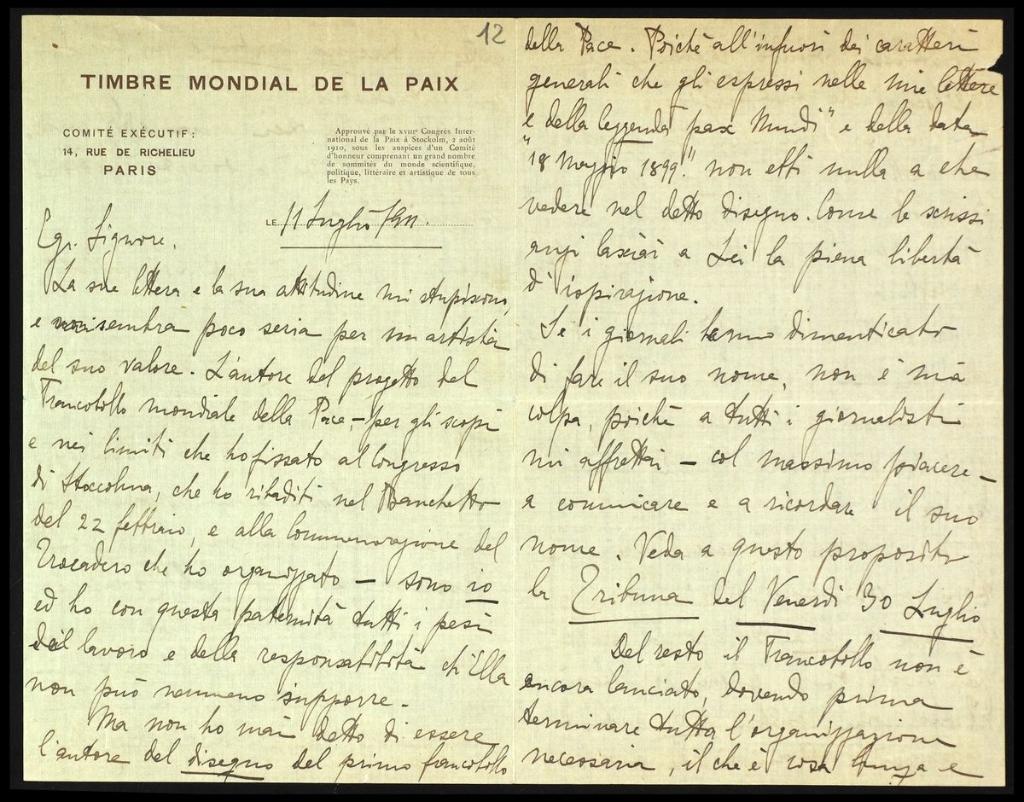 12
TIMBRE MONDIAL DE LA PAIX
COMITÉ EXÉCUTIF:
14, RUE DE RICHELIEU
PARIS
Approuvé par le XVIIIe Congrès Inter-
national de la Paix à Stockolm, 2 août
1910, sous les auspices d'un Comité
d'honneur comprenant un grand nombre
de sommités du monde scientifique,
politique, littéraire et artistique de tous
les Pays.
LE 11 Luglio 1911.
Egr. Signore,
La sua lettera e la sua attitudine mi stupiscono,
e mi sembra poco seria per un artista
del suo valore. L'autore del progetto del
Francobollo mondiale della Pace — per gli scopi
e nei limiti che ho fissato al Congresso
di Stoccolma, che ho ribaditi nel Banchetto
del 22 febbraio, e alla Commemorazione del
Trocadero che ho organizzato — sono io
ed ho con questa paternità tutti i pesi
del lavoro e della responsabilità ch'Ella
non può nemmeno supporre.
Ma non ho mai detto di essere
l'autore del disegno del primo francobollo
della Pace. Poichè all'infuori dei caratteri
generali che gli espressi nelle mie lettere
e della leggenda "pax Mundi" e della data
"18 Maggio 1899". non ebbi nulla a che
vedere nel detto disegno. Come le scrissi
anzi lasciai a Lei la piena libertà
d'ispirazione.
Se i giornali hanno dimenticato
di fare il suo nome, non è mia
colpa, poichè a tutti i giornalisti
mi affrettai — col massimo piacere —
a comunicare e a ricordare il suo
nome. Veda a questo proposito
la Tribuna del Venerdì 30 Luglio
Del resto il Francobollo non è
ancora lanciato, dovendo prima
terminare tutta l'organizzazione
necessaria, il che è cosa lunga e